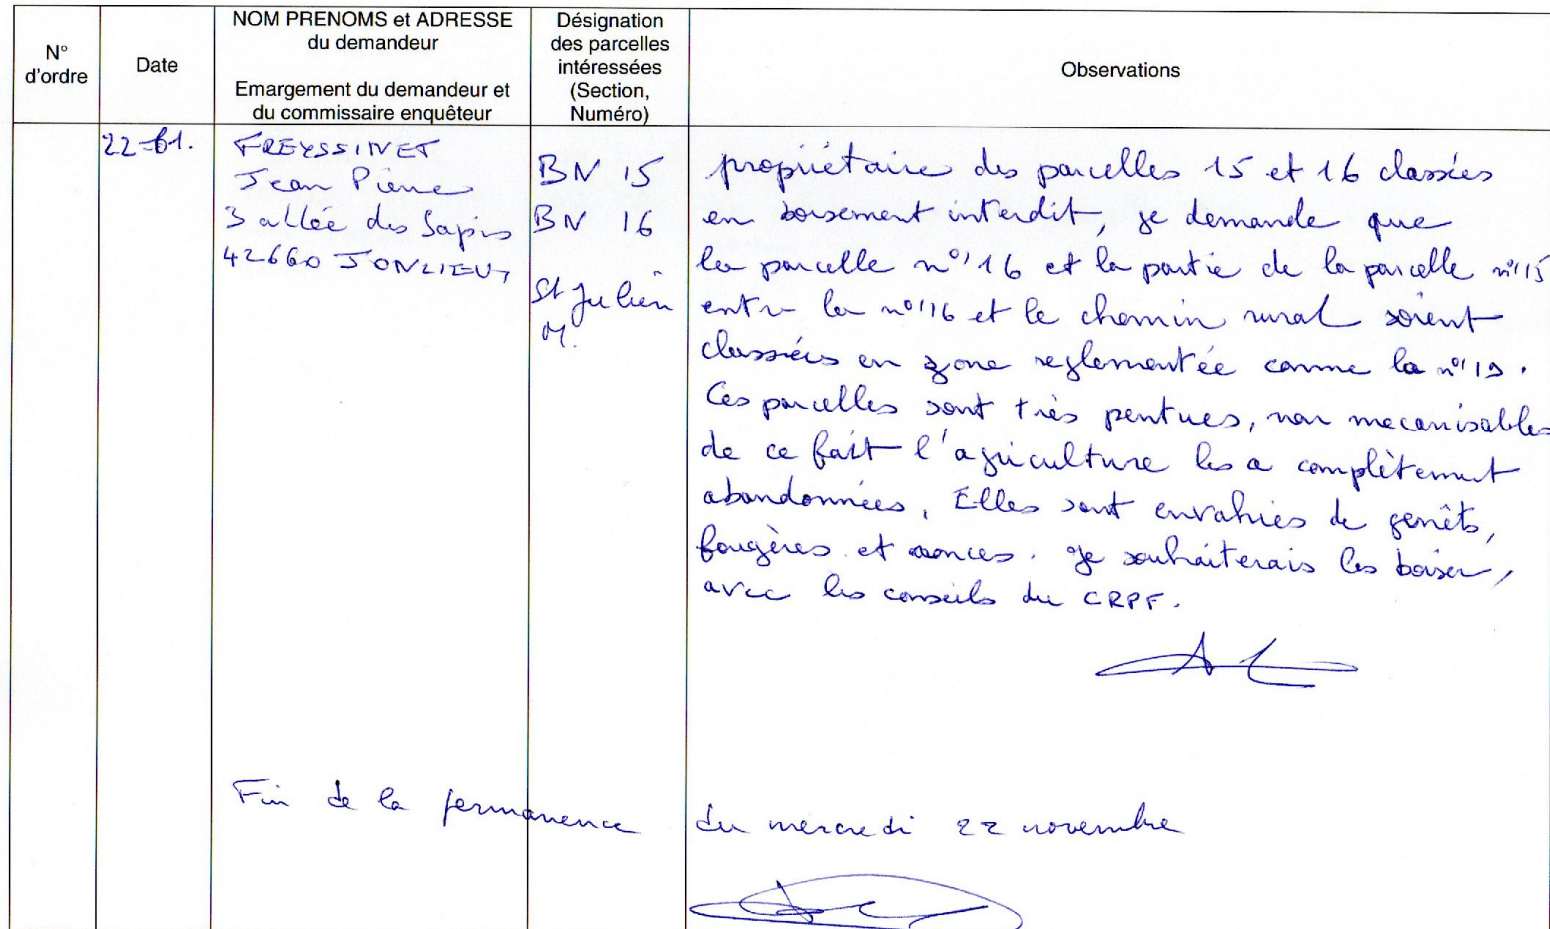 N°
d'ordre
Date
NOM PRENOMS et ADRESSE
du demandeur
Emargement du demandeur et
du commissaire enquêteur
Désignation
des parcelles
intéressées
(Section,
Numéro)
Observations
22-
FREYSSINET
Jean Pierre
3 allée des Sapins
42660 JONZIEUX
BN 15
BN 16
St Julien
M.
propriétaire des parcelles 15 et 16 classées
en boisement interdit, je demande que
la parcelle n° 16 et la partie de la parcelle n° 15
entre la n° 16 et le chemin rural soient
classées en zone reglementée comme la n° 19.
Ces parcelles sont très pentues, non mecanisables
de ce fait l'agriculture les a complètement
abandonnées. Elles sont envahies de genêts,
fougères et ronces. Je souhaiterais les boiser,
avec les conseils du CRPF.
Fin de la permanence du mercredi 22 novembre